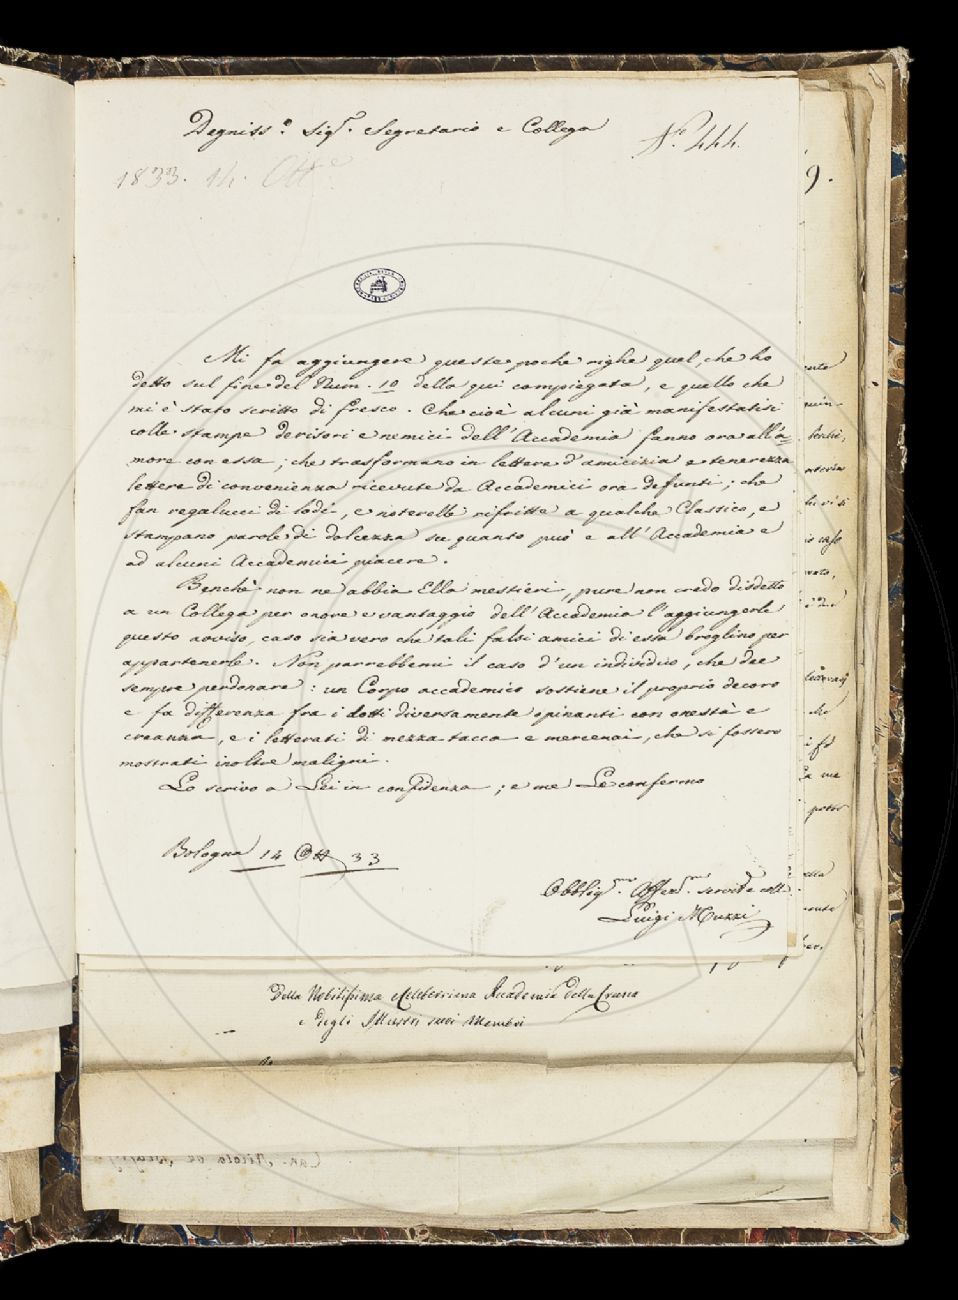 Degniss.º Sigr. Segretario e Collega
Nº. 444.
1833. 14. Otte
Mi fa aggiungere queste poche righe quel, che ho
detto sul fine del Num. 10 della qui compiegata, e quello che
mi è stato scritto di fresco. Che cioè alcuni già manifestatisi
colle stampe derisori e nemici dell'Accademia fanno ora all'a=
more con essa; che trasformano in lettere d'amicizia e tenerezza
lettere di convenienza ricevute da Accademici ora defunti; che
fan regalucci di lodi, e noterelle rifritte a qualche Classico, e
stampano parole di dolcezza su quanto può e all'Accademia e
ad alcuni Accademici piacere.
Benchè non ne abbia Ella mestieri, pure non credo disdetto
a un Collega per onore e vantaggio dell'Accademia l'aggiungerle
questo avviso, caso sia vero che tali falsi amici di essa broglino per
appartenerle. Non parrebbemi il caso d'un individuo, che dee
sempre perdonare: un Corpo accademico sostiene il proprio decoro
e fa differenza fra i dotti diversamente opinanti con onestà e
creanza, e i letterati di mezza tacca e mercenai, che si fossero
mostrati inoltre maligni.
Lo scrivo a Lei in confidenza; e me Le confermo
Bologna 14 Ott 33
Obblig.mo Affez.mo servid.e e coll.
Luigi Muzzi
9.
Della Nobilissima e Celeberrima Accademia della Crusca
e degli Illustri suoi Membri